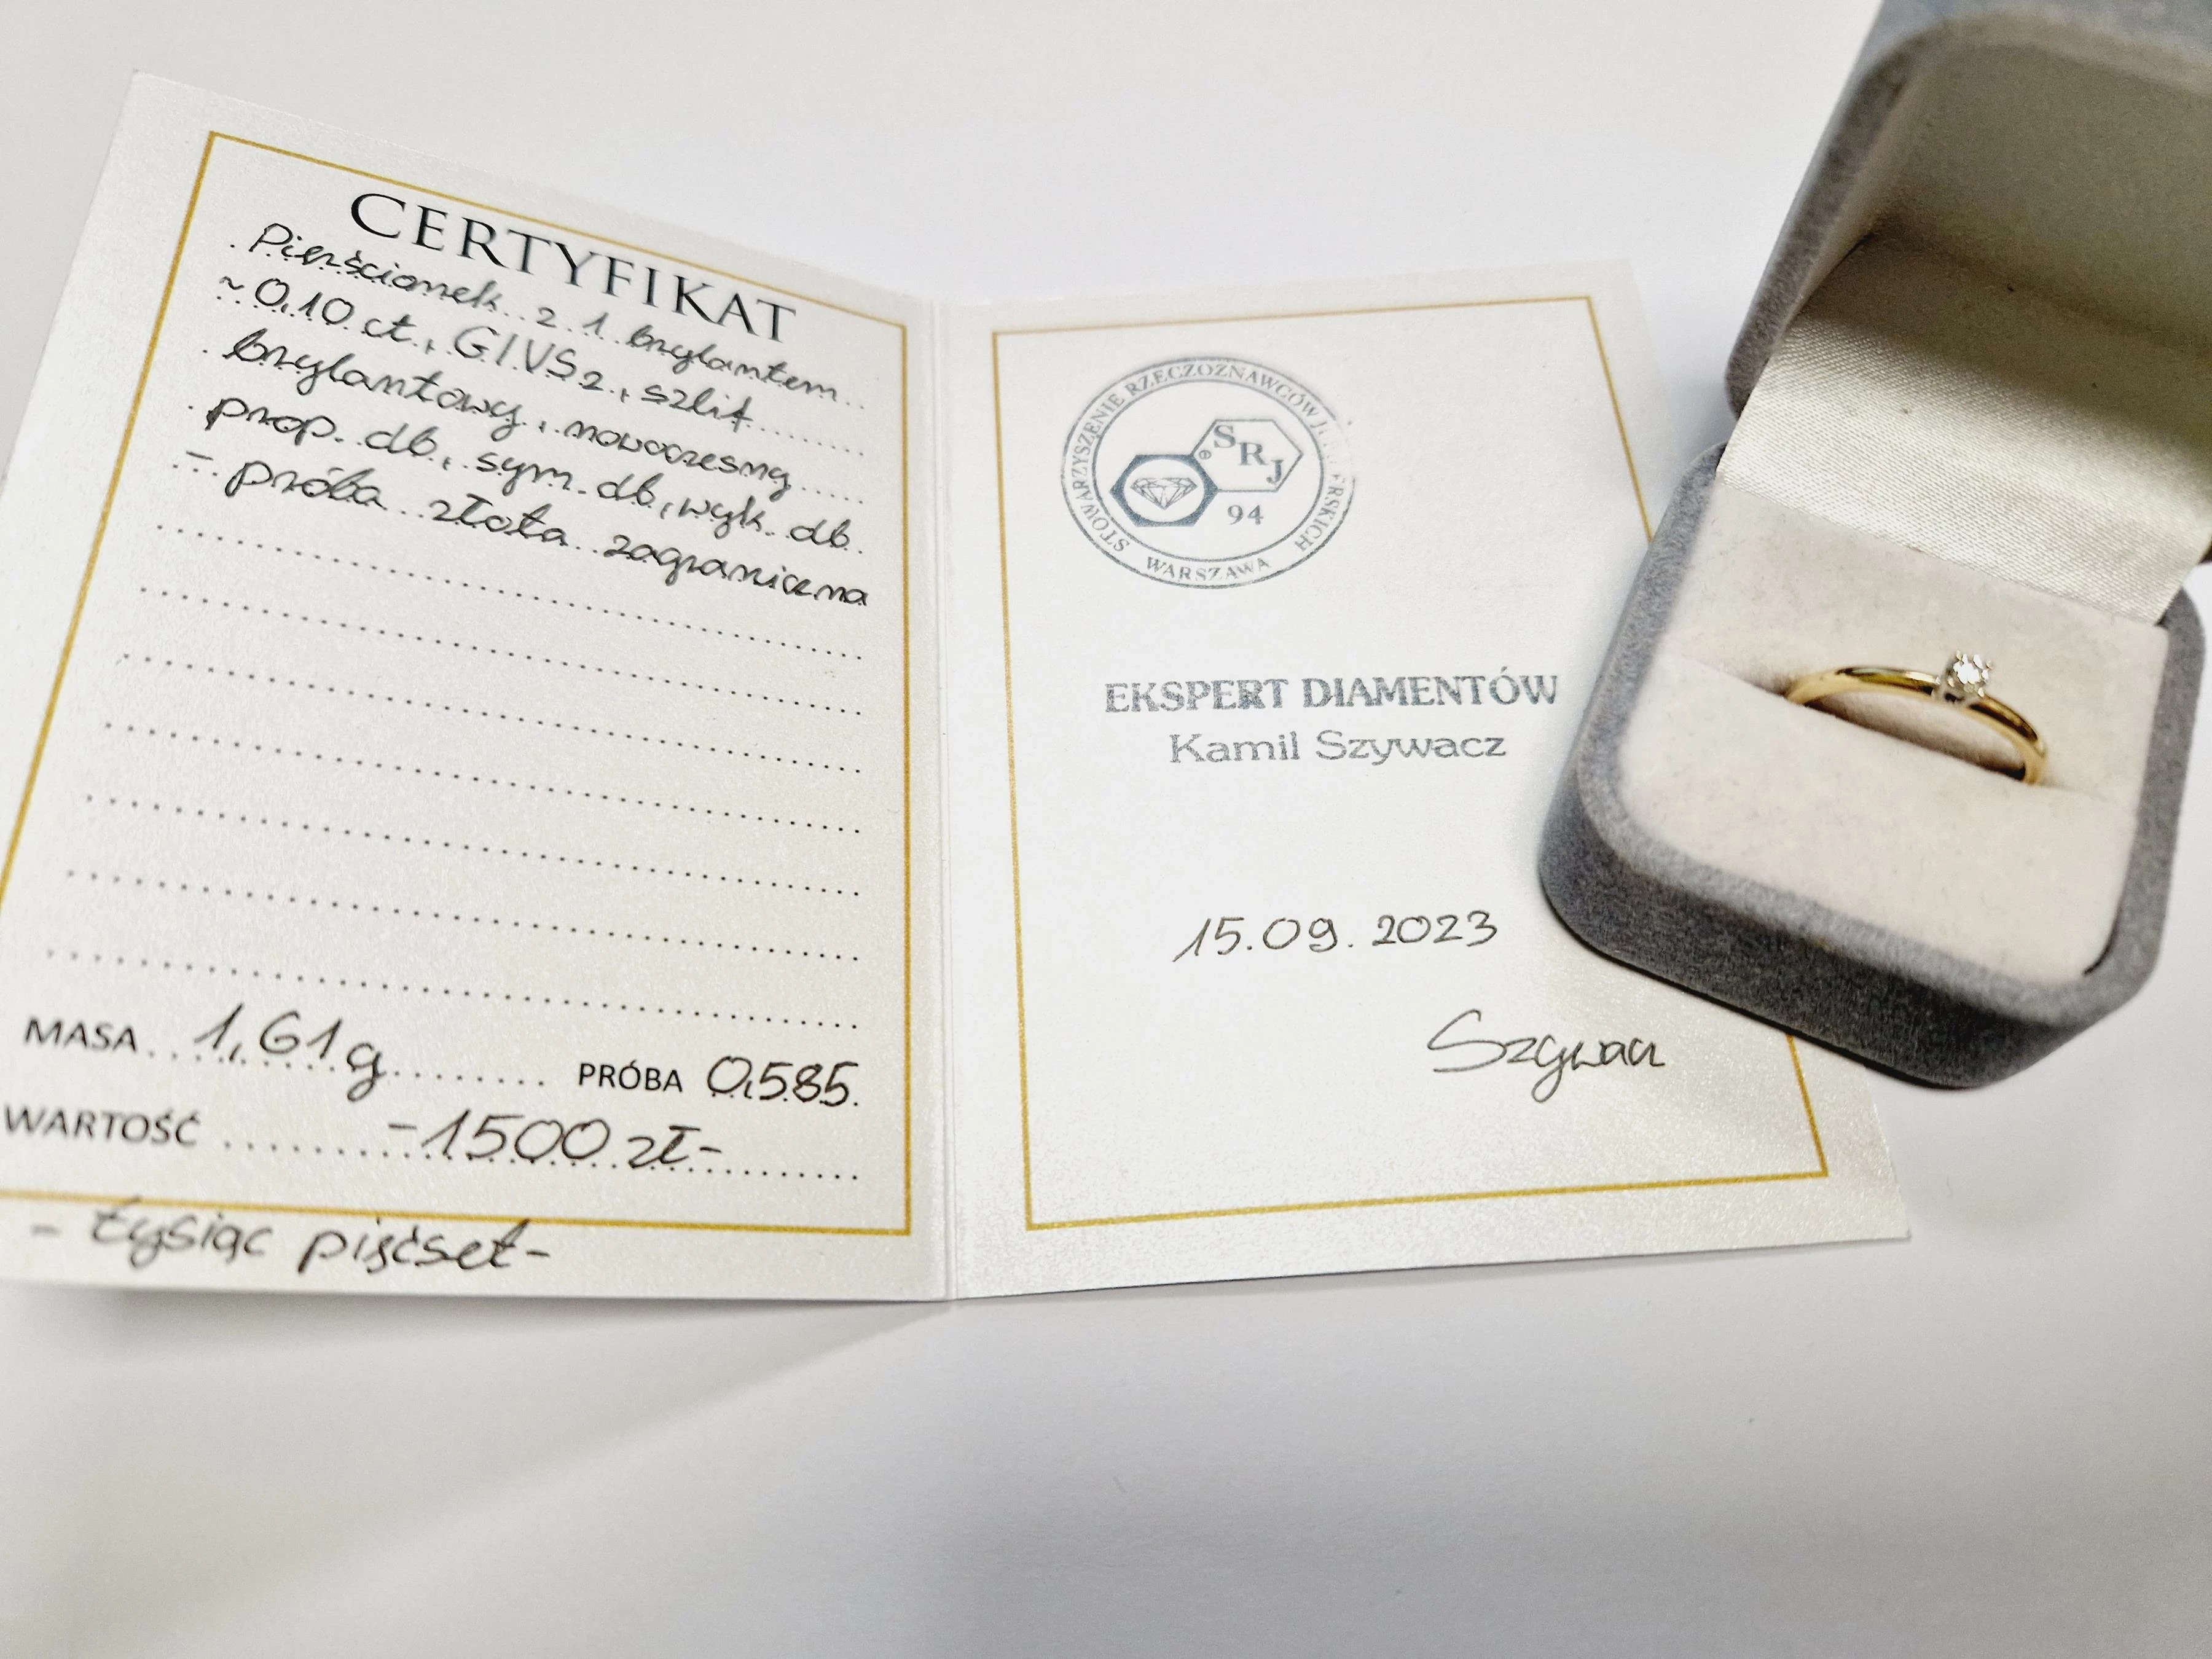 CERTYFIKAT
Pierścionek z 1 brylantem
~0,10 ct, G/VS2, szlif
brylantowy, nowoczesny
prop. db, sym. db, wyk. db.
- próba złota zagraniczna
MASA 1,61 g PRÓBA 0,585
WARTOŚĆ -1500 zł-
- tysiąc pięćset-
STOWARZYSZENIE RZECZOZNAWCÓW
WARSZAWA
SRJ
®
94
EKSPERT DIAMENTÓW
Kamil Szywacz
15.09.2023
Szywacz